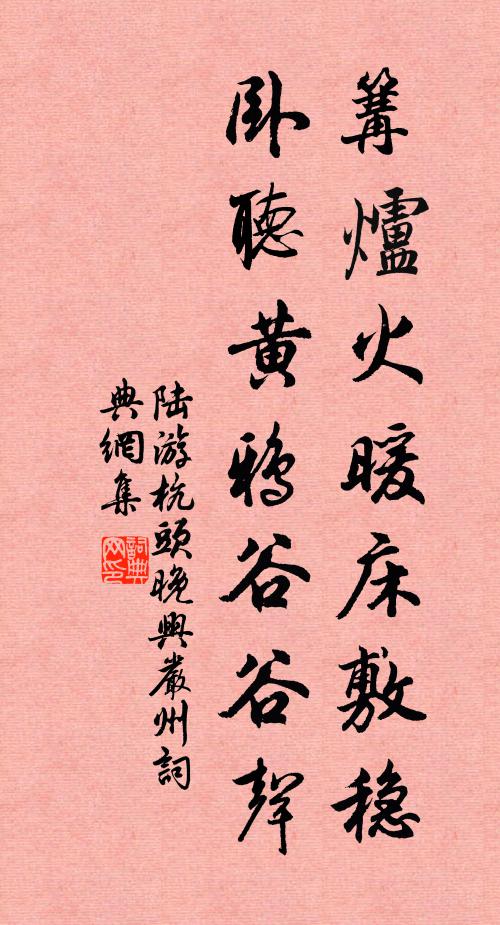 篝爐火暖床敷穩
卧聽黄鴉谷谷聲
陸游杭頭晚興嚴州詞
典網集
詞典
网印